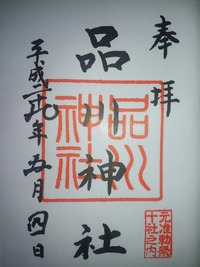 奉拝
品川神社
品川神社
元准勅祭
十社之内
平成二十九年五月四日